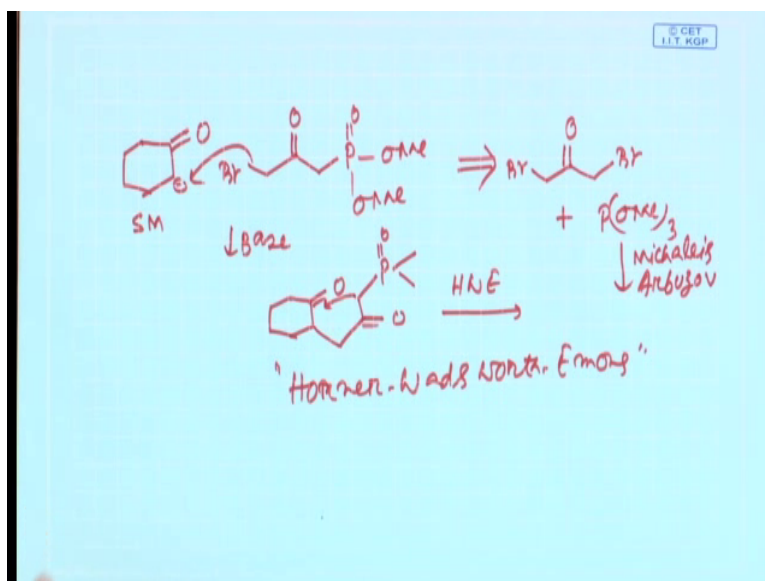 © CET
I.I.T. KGP
O
O
O
Br
P
OMe
OMe
SM
↓Base
⇒
O
Br
Br
+ P(OMe)3
↓ Michaelis
Arbuzov
O
P
O
O
HWE
"Horner-Wadsworth-Emons"